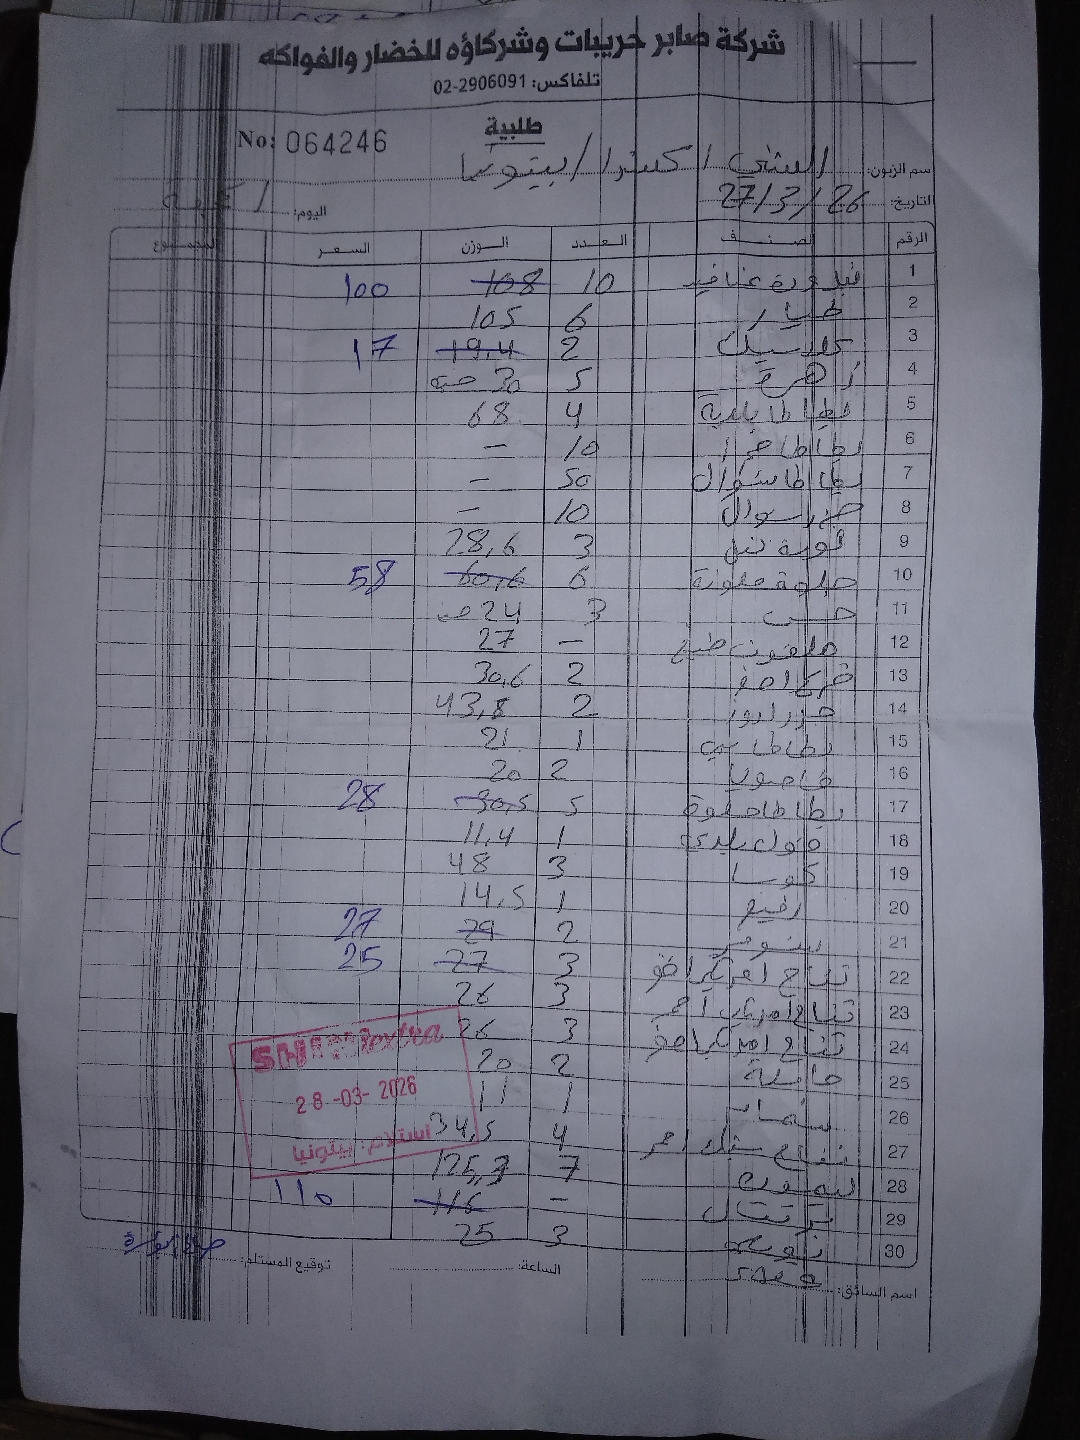 شركة صابر حريبات وشركاؤه للخضار والفواكه
تلفاكس: 02-2906091
طلبية
No: 064246
اسم الزبون: الشني اكسترا / بيتونيا
التاريخ: 27/3/26 اليوم: الجمعة
الرقم الصنف العدد الوزن السعر المجموع
1 بندورة عناقيد 10 108 100
2 خيار 6 105
3 كلاسيك 2 19,4 17
4 زهرة 5 30 حبه
5 بطاطا بلدية 4 68
6 بطاطا 10 -
7 بطاطا شوال 50 -
8 جزر شوال 10 -
9 3 28,6
10 حلوة ملونة 6 60,6 58
11 خس 3 24 حبه
12 ملفوف - 27
13 2 30,6
14 جزر 2 43,8
15 بطاطا 1 21
16 فاصوليا 2 20
17 بطاطا حلوة 5 30,5 28
18 فول بلدي 1 11,4
19 كوسا 3 48
20 رفيع 1 14,5
21 2 29 27
22 تفاح امريكي اخضر 3 27 25
23 تفاح امريكي احمر 3 26
24 تفاح امريكي اصفر 3 26
25 2 20
26 1 11
27 تفاح احمر 4 34,5
28 ليمون 7 125,3
29 برتقال - 116 110
30 3 25
SHINI extra
28-03-2026
استلام: بيتونيا
اسم السائق: الساعة: توقيع المستلم: